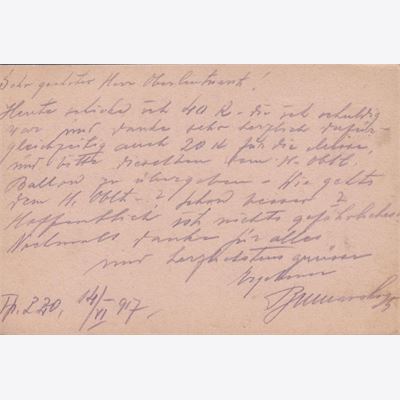 Sehr geehrter Herr Oberleutnant!
Heute schicke ich 40 K - die ich schuldig
war und danke sehr herzlich dafür -
gleichzeitig auch 20 K für die Messe,
und bitte dieselben dem H. Oblt.
Ballon zu übergeben - Wie gehts
dem H. Oblt - ? Schon besser?
Hoffentlich ist nichts gefährliches.
Nochmals danke für alles
und herzlichstens grüssen
Ergebener
Fp. 220, 14/VI 917.